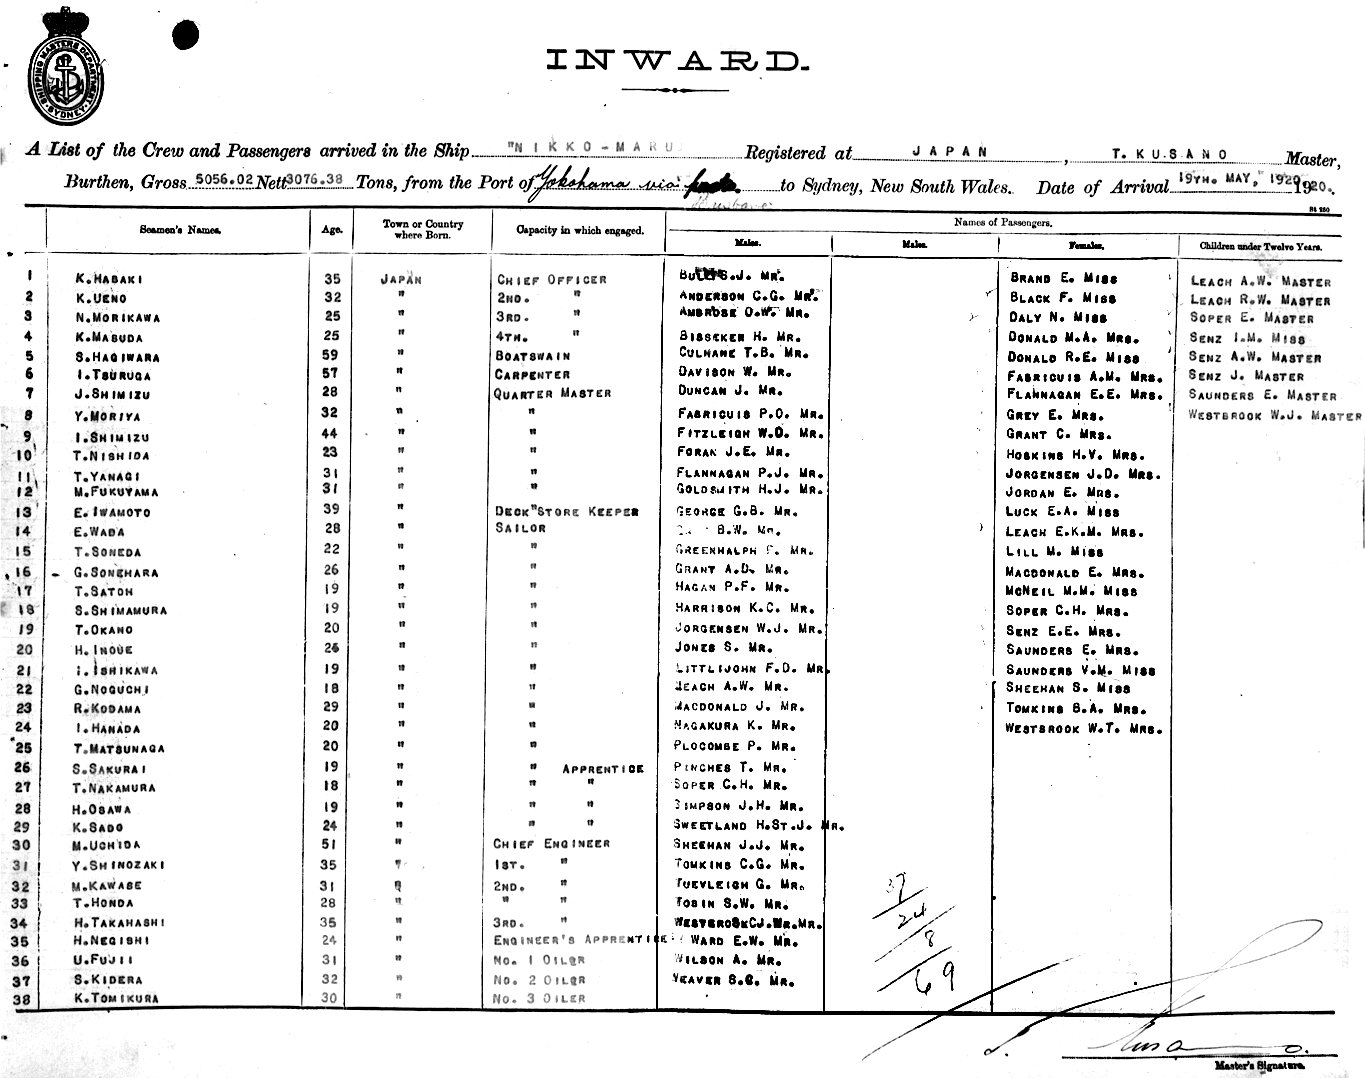 SHIPPING MASTERS DEPARTMENT SYDNEY
INWARD.
A List of the Crew and Passengers arrived in the Ship "NIKKO-MARU Registered at JAPAN , T. KUSANO Master,
Burthen, Gross 5056.02 Nett 3076.38 Tons, from the Port of Yokohama via to Sydney, New South Wales. Date of Arrival 19TH. MAY, 1920 1920.
Brisbane
Seamen's Names. Age. Town or Country where Born. Capacity in which engaged. Names of Passengers.
Males. Males. Females. Children under Twelve Years.
1 K.HABAKI 35 JAPAN CHIEF OFFICER S.J. MR. BRAND E. MISS LEACH A.W. MASTER
2 K.UENO 32 " 2ND. " ANDERSON C.G. MR. BLACK F. MISS LEACH R.W. MASTER
3 N.MORIKAWA 25 " 3RD. " AMBROSE O.W. MR. DALY N. MISS SOPER E. MASTER
4 K.MASUDA 25 " 4TH. " BISSEKER H. MR. DONALD M.A. MRS. SENZ I.M. MISS
5 S.HAGIWARA 59 " BOATSWAIN CULHANE T.B. MR. DONALD R.E. MISS SENZ A.W. MASTER
6 I.TSURUGA 57 " CARPENTER DAVISON W. MR. FABRICUIS A.M. MRS. SENZ J. MASTER
7 J.SHIMIZU 28 " QUARTER MASTER DUNCAN J. MR. FLANNAGAN E.E. MRS. SAUNDERS E. MASTER
8 Y.MORIYA 32 " " FABRICUIS P.O. MR. GREY E. MRS. WESTBROOK W.J. MASTER
9 I.SHIMIZU 44 " " FITZLEIGH W.O. MR. GRANT C. MRS.
10 T.NISHIDA 23 " " FORAN J.E. MR. HOSKINS H.V. MRS.
11 T.YANAGI 31 " " FLANNAGAN P.J. MR. JORGENSEN J.D. MRS.
12 M.FUKUYAMA 31 " " GOLDSMITH H.J. MR. JORDAN E. MRS.
13 E.IWAMOTO 39 " DECK"STORE KEEPER GEORGE G.B. MR. LUCK E.A. MISS
14 E.WADA 28 " SAILOR B.W. MR. LEACH E.K.M. MRS.
15 T.SONEDA 22 " " GREENHALPH MR. LILL M. MISS
16 G.SONEHARA 26 " " GRANT A.D. MR. MACDONALD E. MRS.
17 T.SATOH 19 " " HAGAN P.F. MR. MCNEIL M.M. MISS
18 S.SHIMAMURA 19 " " HARRISON K.C. MR. SOPER C.H. MRS.
19 T.OKANO 20 " " JORGENSEN W.J. MR. SENZ E.E. MRS.
20 H.INOUE 26 " " JONES S. MR. SAUNDERS E. MRS.
21 I.ISHIKAWA 19 " " LITTLIJOHN F.D. MR. SAUNDERS V.M. MISS
22 G.NOGUCHI 18 " " LEACH A.W. MR. SHEEHAN S. MISS
23 R.KODAMA 29 " " MACDONALD J. MR. TOMKINS B.A. MRS.
24 I.HANADA 20 " " NAGAKURA K. MR. WESTBROOK W.T. MRS.
25 T.MATSUNAGA 20 " " PLOCOMBE P. MR.
26 S.SAKURAI 19 " " APPRENTICE PINCHES T. MR.
27 T.NAKAMURA 18 " " " SOPER C.H. MR.
28 H.OSAWA 19 " " " SIMPSON J.H. MR.
29 K.SADO 24 " " " SWEETLAND H.ST.J. MR.
30 M.UCHIDA 51 " CHIEF ENGINEER SHEEHAN J.J. MR.
31 Y.SHINOZAKI 35 " 1ST. " TOMKINS C.G. MR.
32 M.KAWASE 31 " 2ND. " TUEVLEIGH G. MR.
33 T.HONDA 28 " " " TOBIN S.W. MR.
34 H.TAKAHASHI 35 " 3RD. " MR.
35 H.NEGISHI 24 " ENGINEER'S APPRENTICE WARD E.W. MR.
36 U.FUJII 31 " NO. 1 OILER WILSON A. MR.
37 S.KIDERA 32 " NO. 2 OILER WEAVER S.C. MR.
38 K.TOMIKURA 30 " NO. 3 OILER
37
24
8
69
T. Kusano.
Master's Signature.